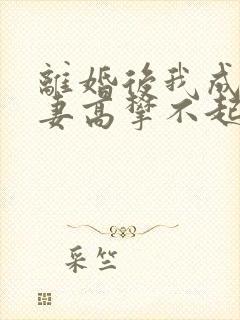 離婚後我成
妻高攀不起
采竺